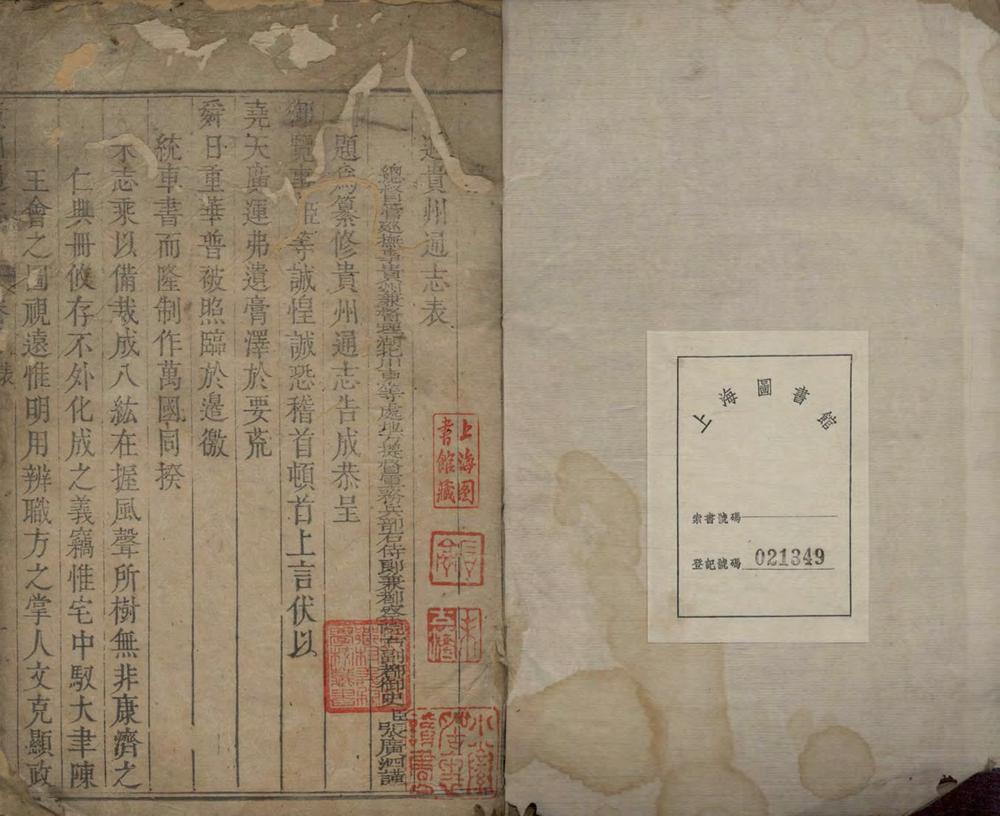 上海圖書館
索書號碼
登記號碼 021349
進貴州通志表
總督管巡撫事貴州兼督理湖北川東等處地方提督軍務兵部右侍郎兼都察院右副都御史臣張廣泗謹
題爲纂修貴州通志告成恭呈
御覽事臣等誠惶誠恐稽首頓首上言伏以
堯天廣運弗遺膏澤於要荒
舜日重華普被照臨於邊徼
統車書而隆制作萬國同揆
示志乘以備裁成八紘在握風聲所樹無非康濟之
仁典冊攸存不外化成之義竊惟宅中馭大聿陳
王會之圖視遠惟明用辨職方之掌人文克顯政
上海图書館藏